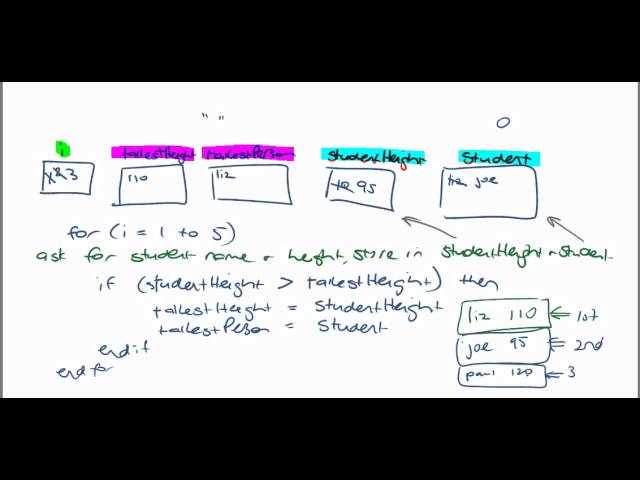 " " 0
i tallestHeight tallestPerson studentHeight Student
3 110 liz 95 joe
for (i = 1 to 5)
ask for student name + height, store in studentHeight + student
if (studentHeight > tallestHeight) then
tallestHeight = studentHeight
tallestPerson = student
end if
end for
liz 110 1st
joe 95 2nd
paul 120 3